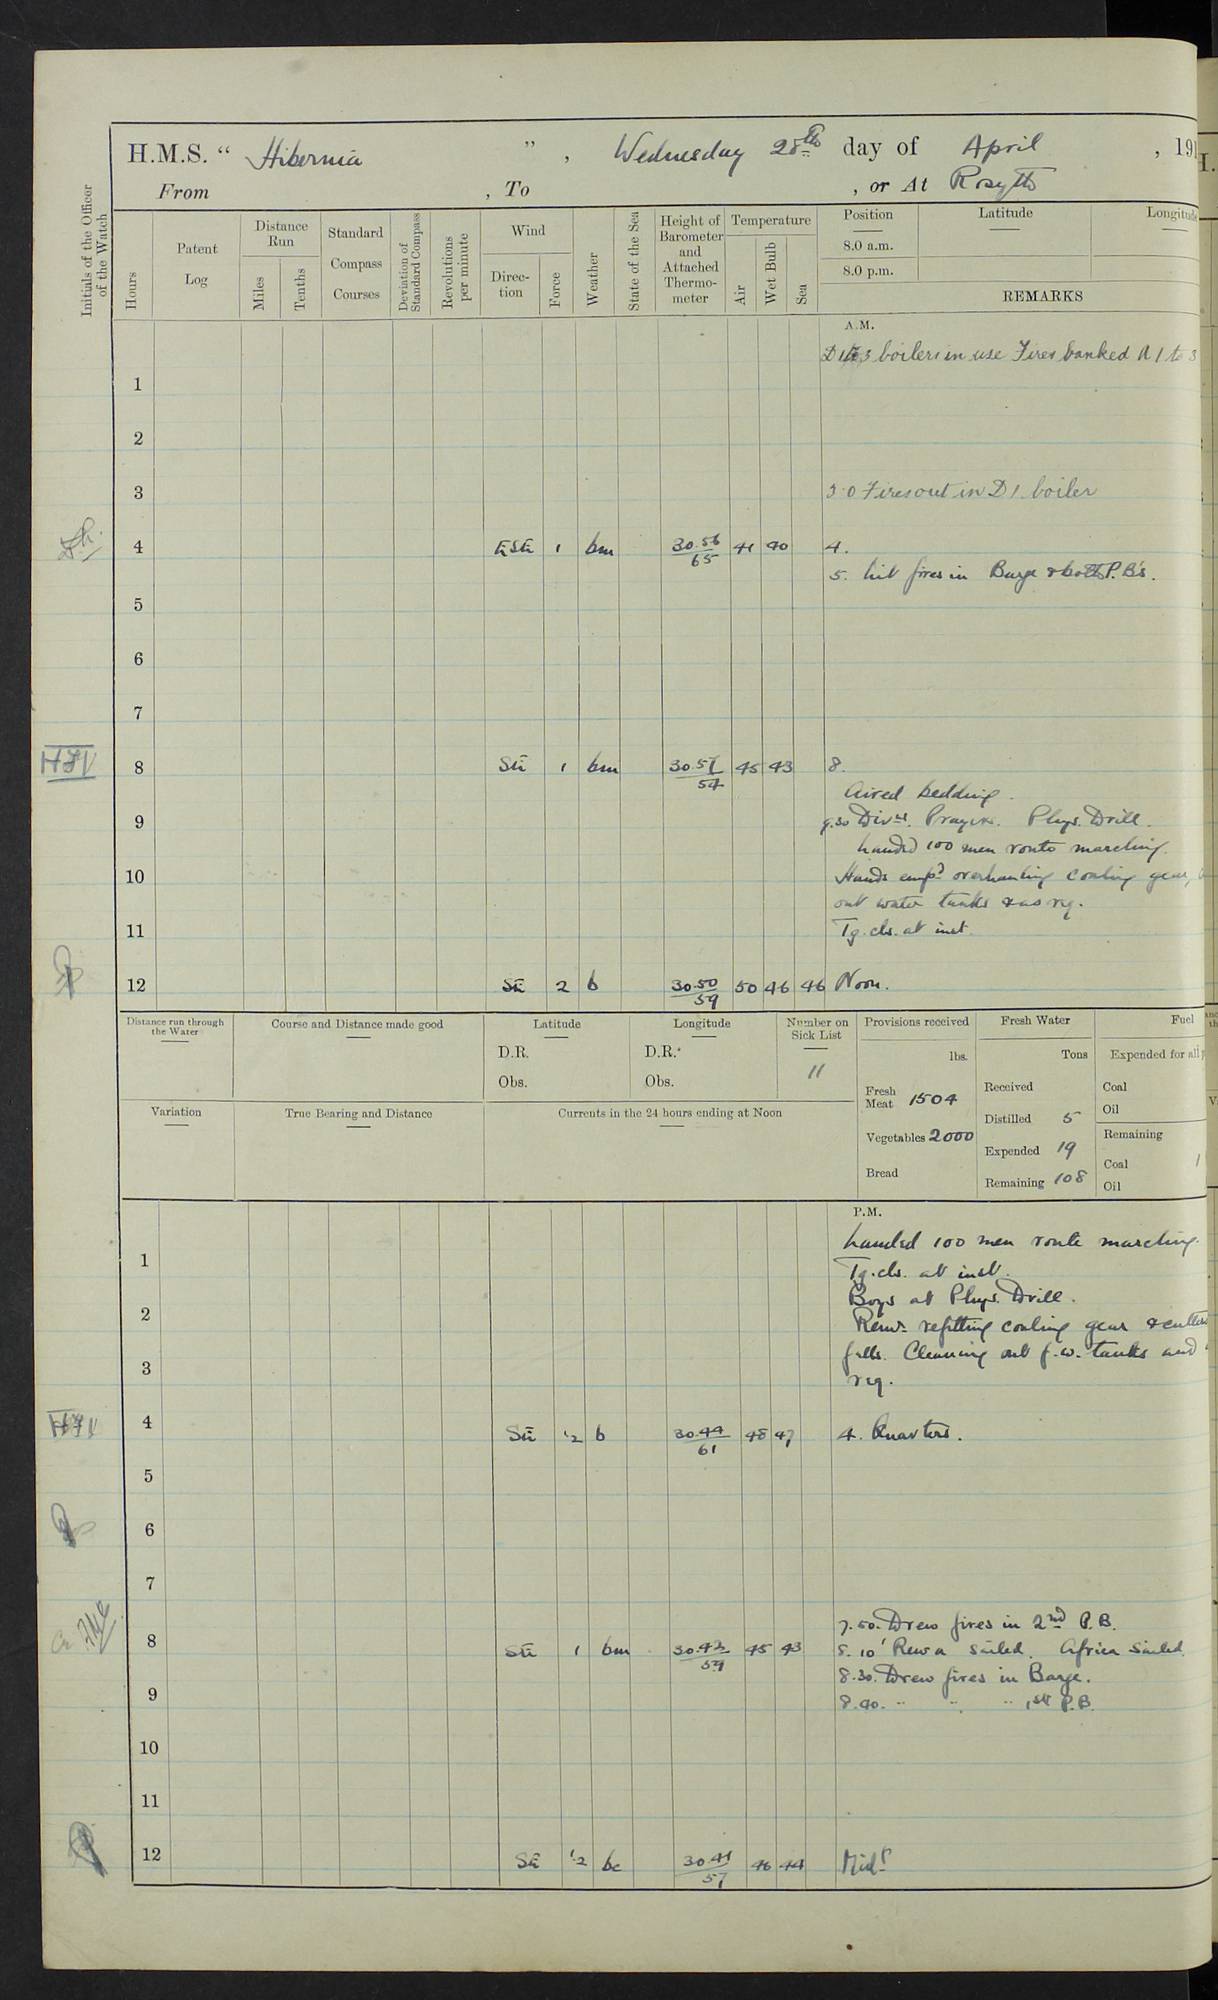 H.M.S. “ Hibernia ” , Wednesday 28th day of April , 191
From , To , or At Rosyth
Initials of the Officer of the Watch
Hours
Patent Log
Distance Run
Miles
Tenths
Standard Compass Courses
Deviation of Standard Compass
Revolutions per minute
Wind
Direction
Force
Weather
State of the Sea
Height of Barometer and Attached Thermometer
Temperature
Air
Wet Bulb
Sea
Position
8.0 a.m.
8.0 p.m.
Latitude
Longitude
REMARKS
A.M.
boilers in use Fires banked A 1 to 3
1
2
3 3.0 Fires out in D 1. boiler
4 ESE 1 bm 30.56/65 41 40 4.
5. Lit fires in Barge & both P.B's.
5
6
7
8 SE 1 bm 30.51/54 45 43 8.
Aired bedding.
9 9.30 Divns. Prayers. Phys. Drill.
Landed 100 men route marching.
10 Hands empd overhauling coaling gear,
out water tanks & as rq.
11 Tg. cls. at inst.
12 SE 2 b 30.50/59 50 46 46 Noon.
Distance run through the Water
Course and Distance made good
Latitude
D.R.
Obs.
Longitude
D.R.
Obs.
Number on Sick List
11
Provisions received
lbs.
Fresh Meat 1504
Vegetables 2000
Bread
Fresh Water
Tons
Received
Distilled 5
Expended 19
Remaining 108
Fuel
Expended for all
Coal
Oil
Remaining
Coal 1
Oil
Variation
True Bearing and Distance
Currents in the 24 hours ending at Noon
P.M.
Landed 100 men route marching.
1
Tg. cls. at inst.
Boys at Phys. Drill.
2
Remr refitting coaling gear & cutters
falls. Cleaning out f.w. tanks and
3
rq.
4 SE 1-2 b 30.44/61 48 47 4. Quarters.
5
6
7
7.50. Drew fires in 2nd P.B.
8 SE 1 bm 30.42/59 45 43 8.10 Rewa sailed. Africa sailed.
8.30. Drew fires in Barge.
9
8.40. " " " 1st P.B.
10
11
12 SE 1-2 bc 30.41/57 46 44 Midt